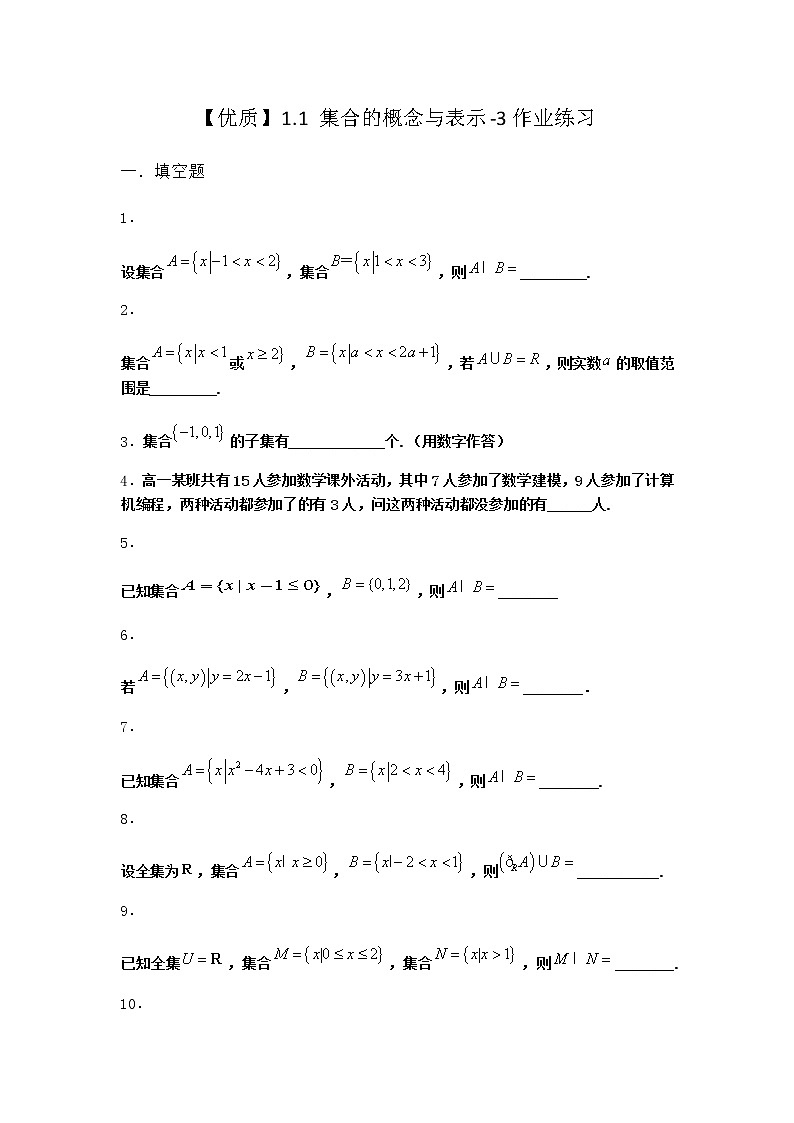 【优质】1.1 集合的概念与表示-3作业练习
一．填空题
1．
设集合A={x|−1<x<2}，集合B={x|1<x<3}，则A| B=_________．
2．
集合A={x|x<1或x≥2}，B={x|a<x<2a+1}，若A∪B=R，则实数a的取值范
围是_________．
3．集合{−1,0,1}的子集有_____________个.（用数字作答）
4．高一某班共有15人参加数学课外活动，其中7人参加了数学建模，9人参加了计算
机编程，两种活动都参加了的有3人，问这两种活动都没参加的有______人.
5．
已知集合A={x|x−1≤0}，B={0,1,2}，则A| B=________
6．
若A={(x,y)|y=2x−1}，B={(x,y)|y=3x+1}，则A| B=________．
7．
已知集合A={x|x²−4x+3<0}，B={x|2<x<4}，则A| B=________.
8．
设全集为R，集合A={x| x≥0}，B={x|−2<x<1}，则(ðRA)∪B=___________.
9．
已知全集U=R，集合M={x|0≤x≤2}，集合N={x|x>1}，则M| N=________.
10．